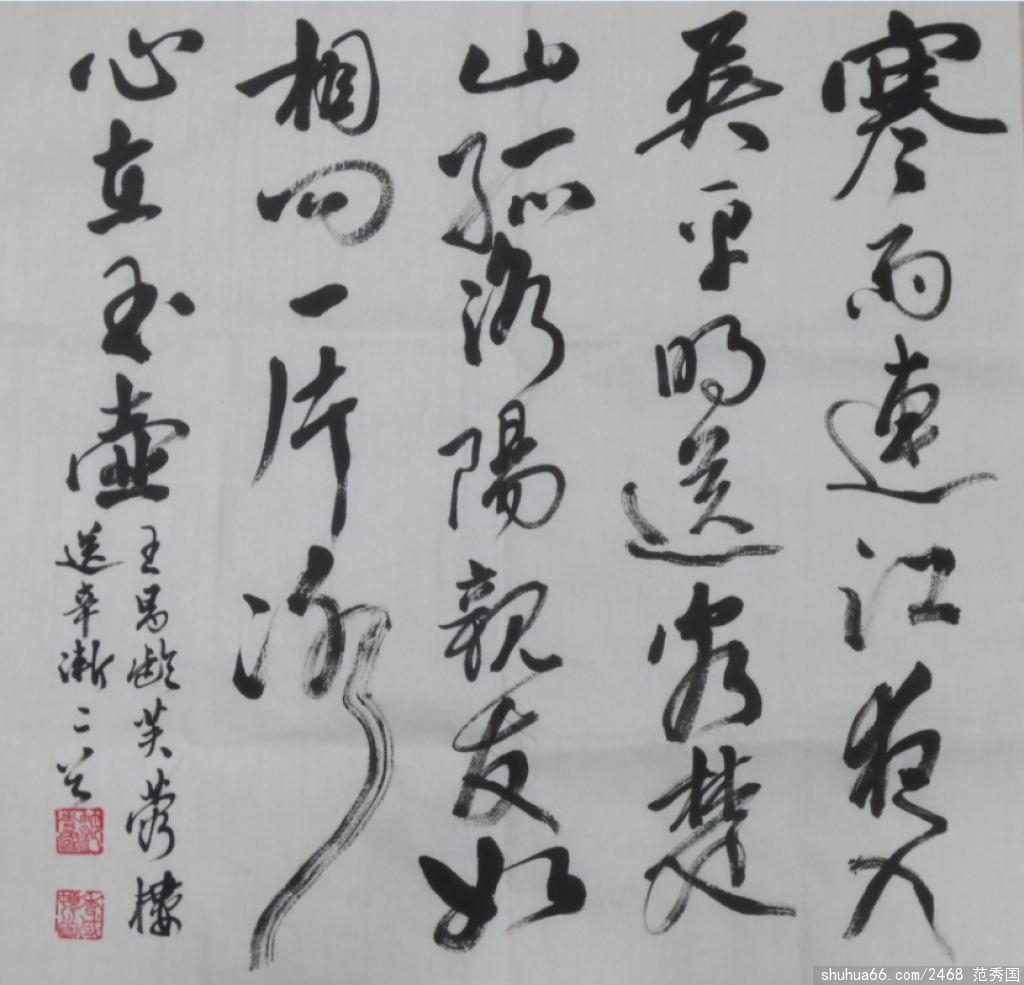 寒雨連江夜入
吳平明送客楚
山孤洛陽親友如
相问一片冰
心在玉壺
王昌齡芙蓉樓
送辛漸二首
shuhua66.com/2468 范秀国